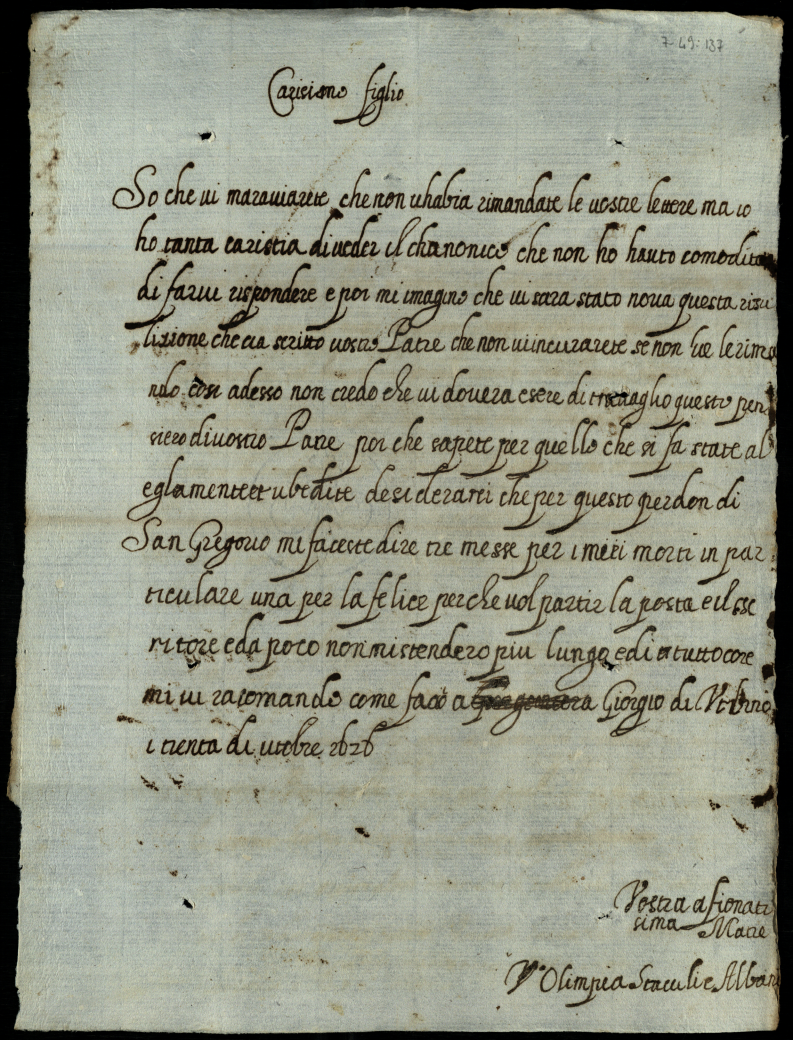 7-49-137
Carisimo figlio
So che vi maraviarete che non vhabia rimandate le vostre lettere ma io
ho tanta caristia di veder il chanonico che non ho hauto comodita
di farvi rispondere e poi mi imagino che vi sara stato nova questa risu
lizione che scritto vostro Patre che non vi incurarete se non le rima
ndo cosi adesso non credo che vi dovera esere di travaglio questo pen
siero di vostro Patre poi che sapete per quello che si fa state al
eglamente et ubedite desiderarei che per questo perdon di
San Gregorio mi faceste dire tre messe per i miei morti in par
ticulare una per la felice perche vol partir la posta e il sc
ritore e da poco non mi stendero piu lungo e di tutto core
mi vi racomando come facio a Giorgio di Urbino
i trenta di utobre 1626
Vostra afionati
sima Matre
Olimpia Staculi e Albani